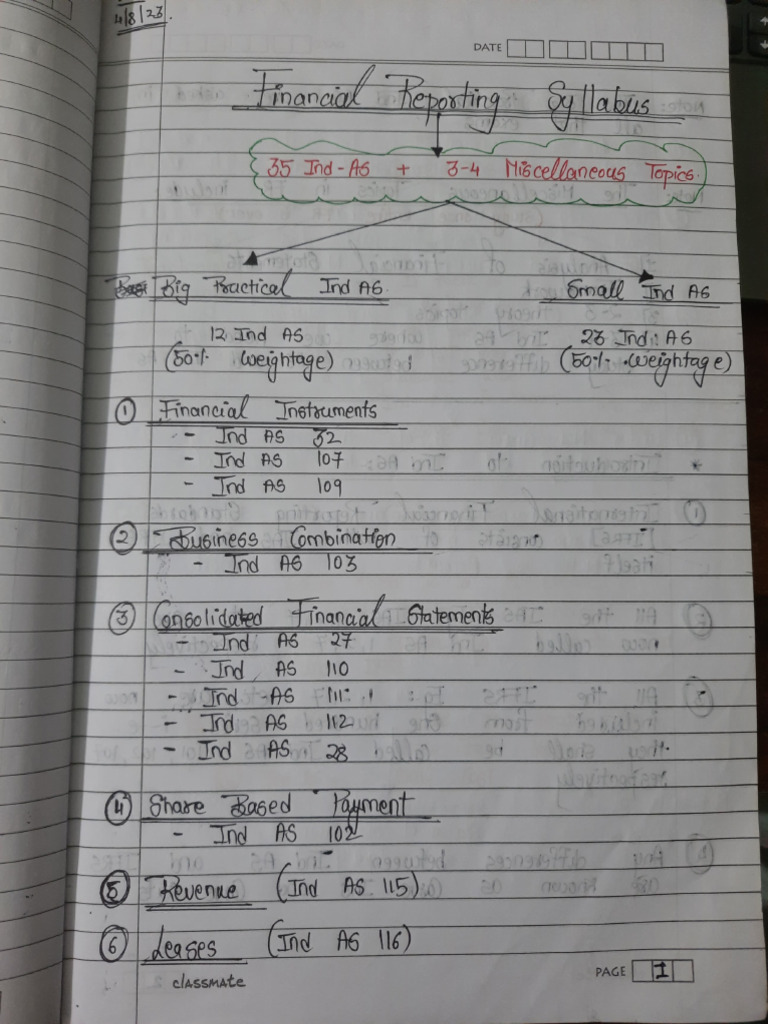 4/8/23
DATE
Financial Reporting Syllabus
35 Ind-AS + 3-4 Miscellaneous Topics.
Big Practical Ind AS.
Small Ind AS
12 Ind AS
23 Ind AS
(50% weightage)
(50% weightage)
① Financial Instruments
- Ind AS 32
- Ind AS 107
- Ind AS 109
② Business Combination
- Ind AS 103
③ Consolidated Financial Statements
- Ind AS 27
- Ind AS 110
- Ind AS 111
- Ind AS 112
- Ind AS 28
④ Share Based Payment
- Ind AS 102
⑤ Revenue (Ind AS 115)
⑥ Leases (Ind AS 116)
classmate
PAGE 1